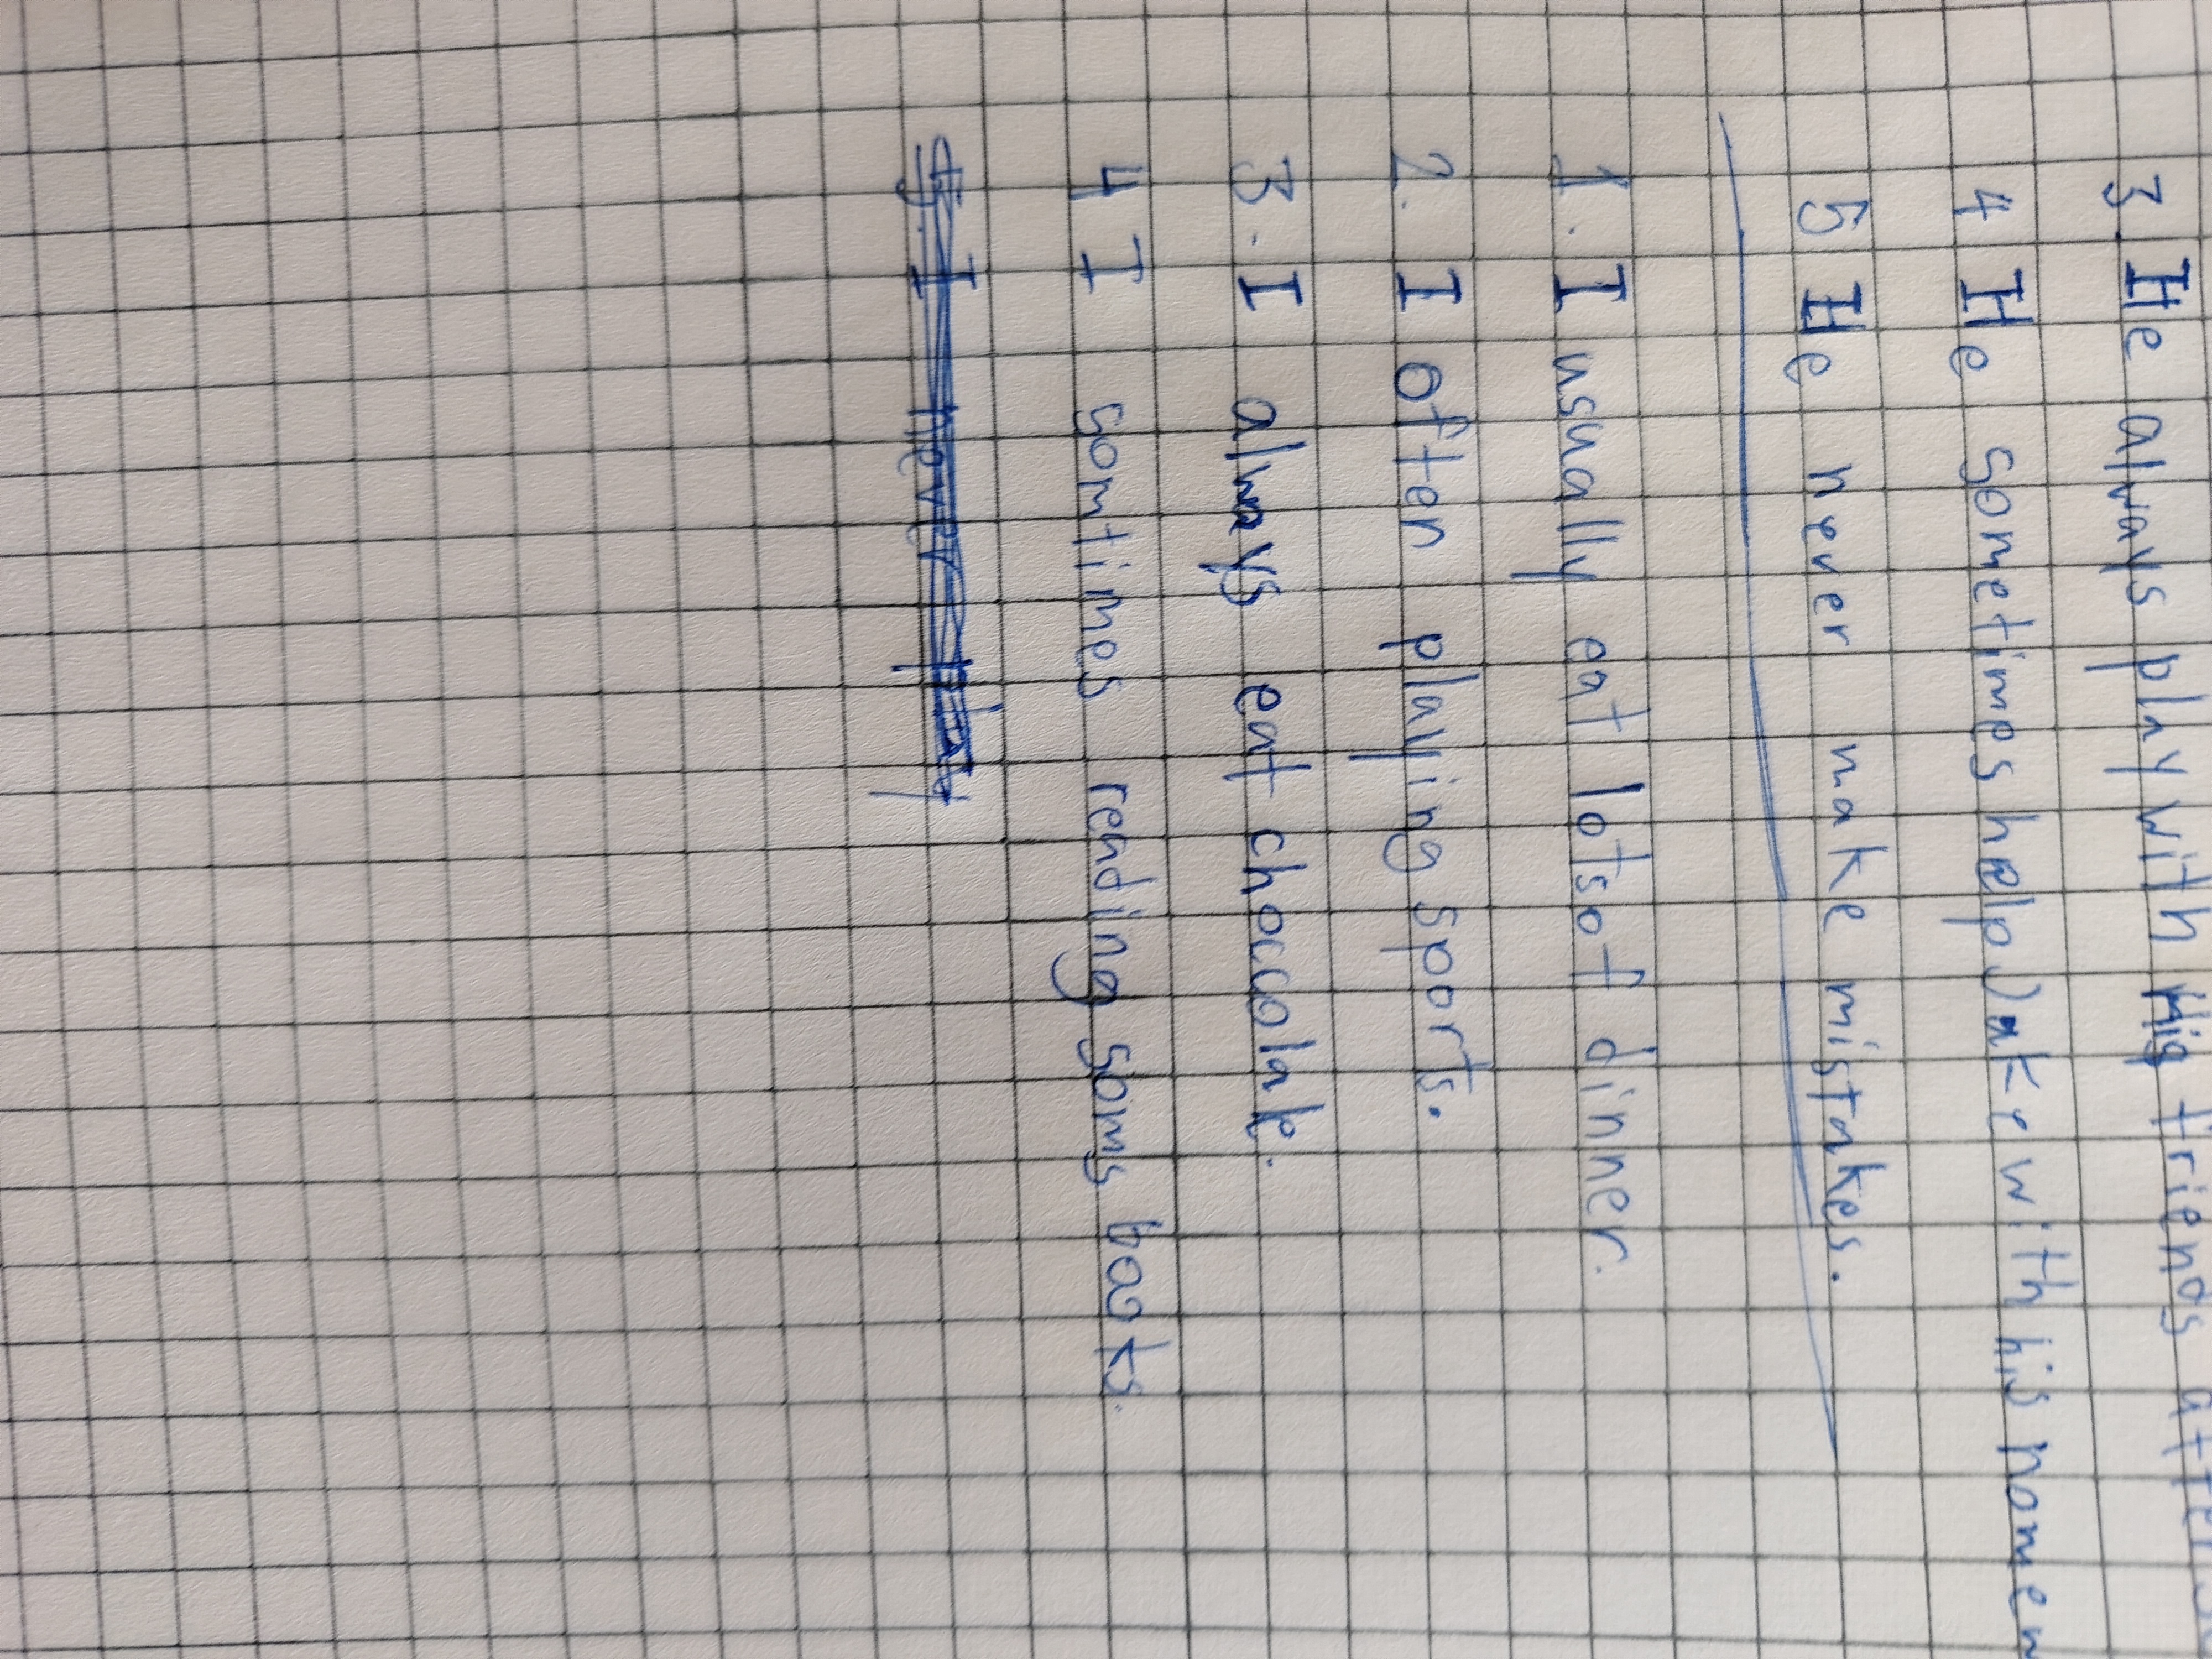 3. He always play with his friends
4 He sometimes help Jake with his
5 He never make mistakes.
1. I usually eat lots of dinner.
2. I often playing sports.
3. I always eat choccolate.
4 I somtimes reading soms books.
5. I never play